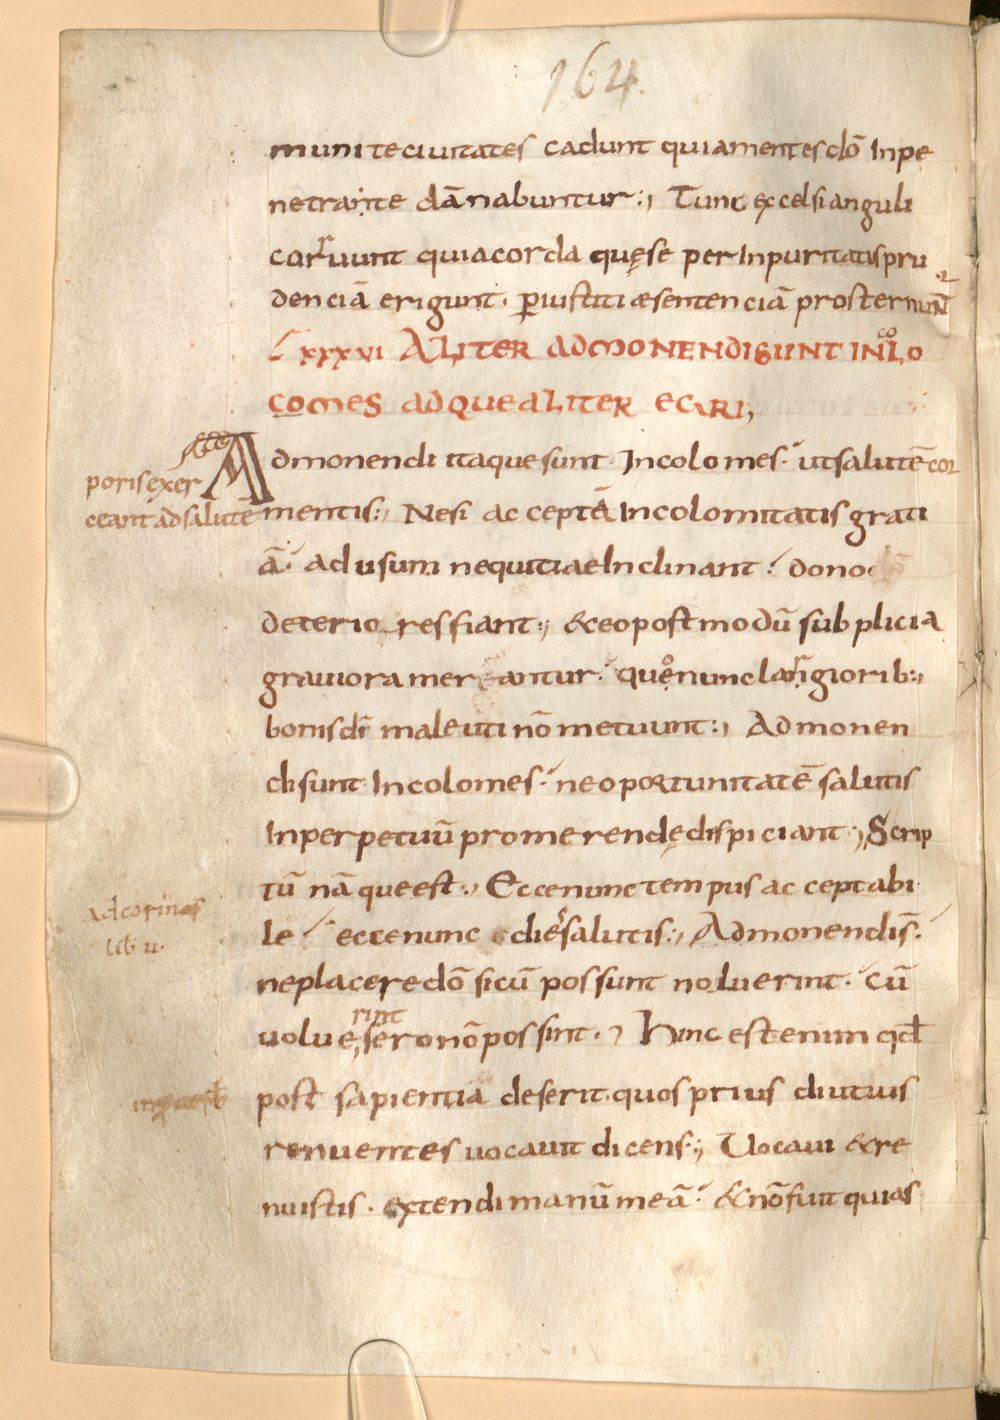 164.
munitecivitates cadunt quiamentesdō Inpe
netrante dānabuntur:, Tunc excelsianguli
corruunt quiacorda quęse perInpuritatispru
denciā erigunt· ꝑiustitiæsentenciā prosternunt̄
LXXXVI ALITER ADMONENDISUNT INcolO
COMES ADQUEALITER EGRI;
Admonendi itaquesunt· Incolomes· utsalutē cor
porisexer
ceant adsalutē mentis:, Nesi acceptā Incolomitatis grati
ā· adusum nequitiaeInclinant· dono
deteriores fiant:, &eopostmodū subplicia
graviora mereantur· quonunclargiorib:,
bonisdī maleuti nōmetuunt:, Admonen
disunt Incolomes· neoportunitatē salutis
Inperpetuū promerendędispiciant:, Scrip
tū nāqueest:, Eccenunctempus acceptabi
adcorinos
lib· ii·
le eccenunc diessalutis:, Admonendis̄·
neplacere dō sicū possunt noluerint· cū
rint
volue,seronōpossint·, Hinc estenim qđ
post sapientia deserit·quosprius diutius
renuentes vocavit dicens:, Vocavi &re
nuistis· extendimanūmeā· &nōfuitquias